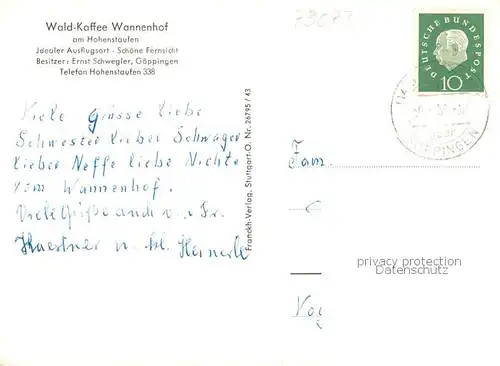 Wald-Kaffee Wannenhof
am Hohenstaufen
Jdealer Ausflugsort - Schöne Fernsicht
Besitzer: Ernst Schwegler, Göppingen
Telefon Hohenstaufen 338
Viele Grüsse liebe
Schwester lieber Schwager
lieber Neffe liebe Nichte
vom Wannenhof.
Viele Grüße auch v. Fr.
Haertner u. kl. Heinerle
Franckh-Verlag, Stuttgart-O. Nr. 26795 / 43
73073
DEUTSCHE BUNDESPOST
10
GÖPPINGEN
Fam.
privacy protection
Datenschutz